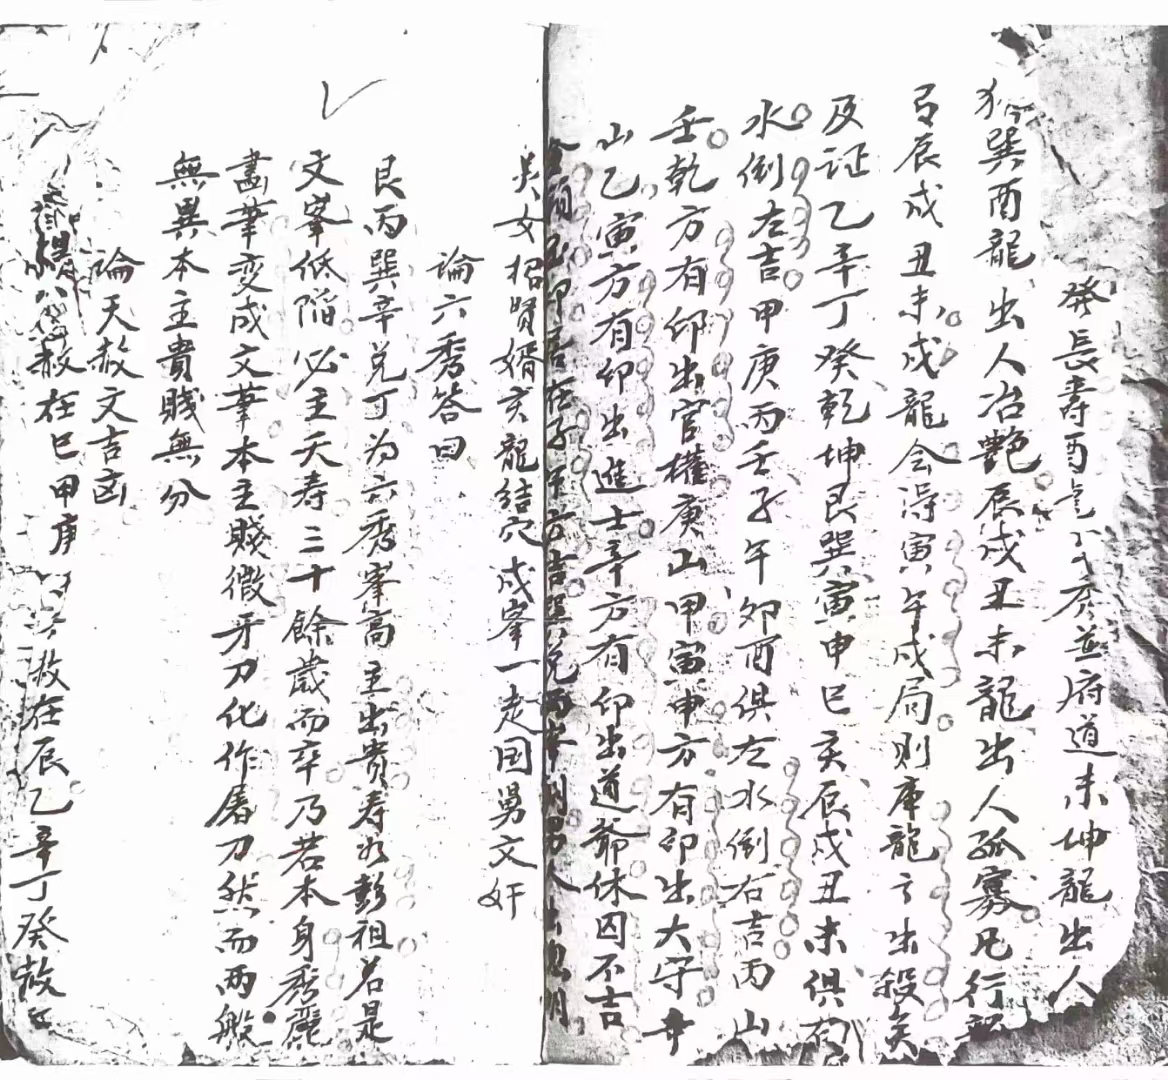 發長壽酉 秀並府道未坤龍出人
巽酉龍出人冶艷辰戌丑未龍出人孤寡凡行龍
辰戌丑未戌龍会得寅午戌局则庫龍亏出殺矣
及证乙辛丁癸乾坤艮巽寅申巳亥辰戌丑未俱右
水倒左吉甲庚丙壬子午卯酉俱左水倒右吉丙山
壬乾方有印出官權庚山甲寅申方有印出大守辛
山乙寅方有印出進士辛方有印出道爺休囚不吉
在子午方吉巽兑丙辛
吴女招賢婿亥龍結穴成峯一走国舅文奸
論六秀答曰
艮丙巽辛兑丁为六秀峯高主出贵寿如彭祖若是
文峯低陷必主夭寿三十餘歲而卒乃若本身秀麗
畵筆变成文筆本主賤微牙刀化作屠刀然而两般
無異本主貴賤無分
論天赦文吉凶
赦在巳甲庚 赦在辰乙辛丁癸赦